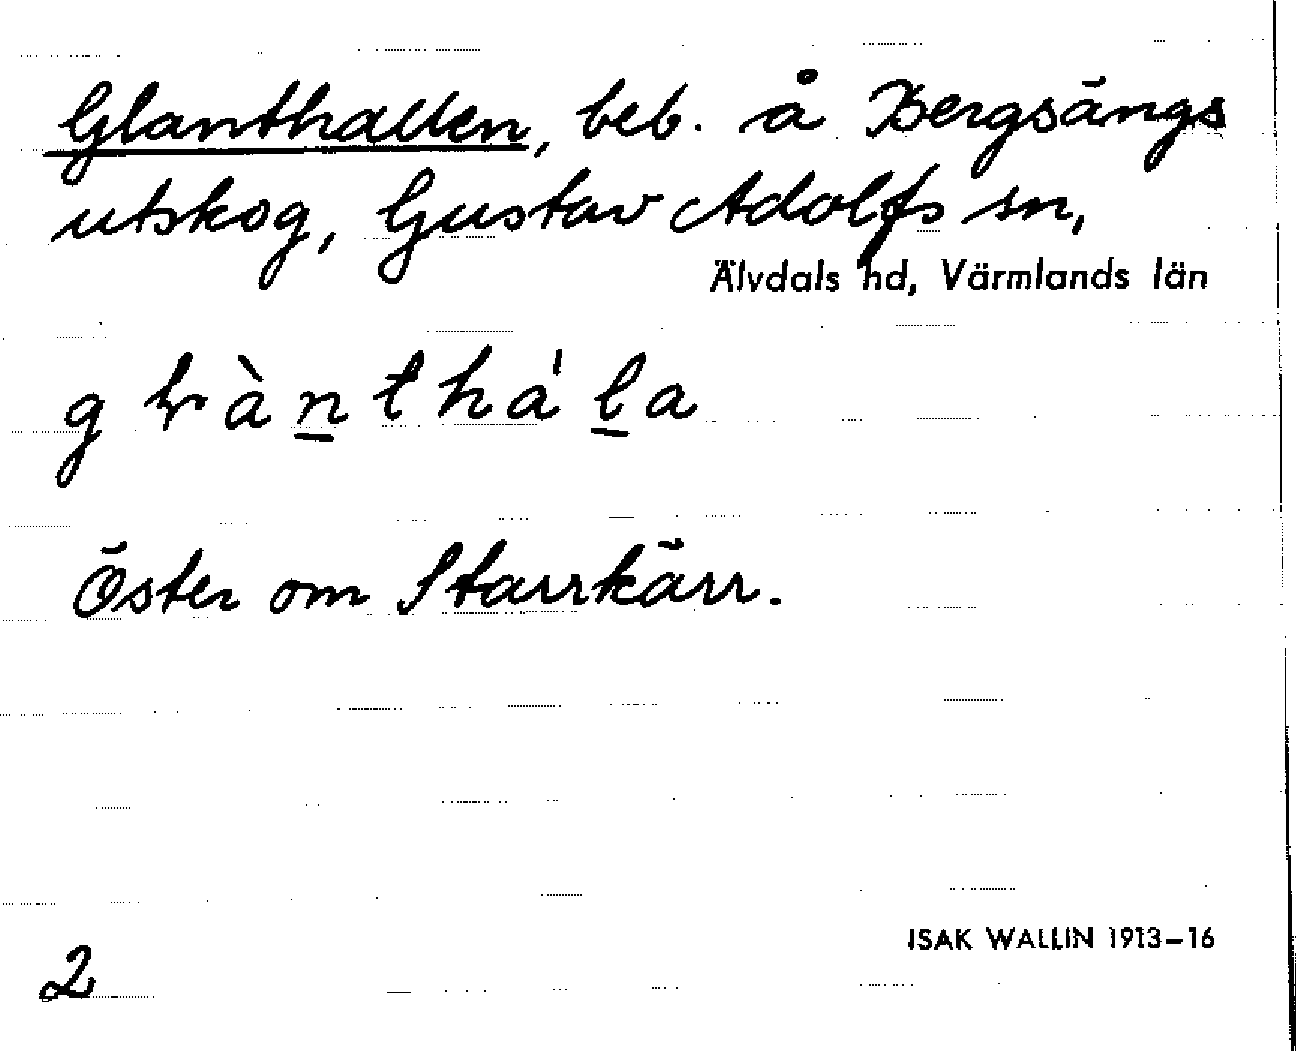 Glanthallen, beb. å Bergsängs
utskog, Gustav Adolfs sn,
Älvdals hd, Värmlands län
Öster om Starrkärr.
ISAK WALLIN 1913–16
2